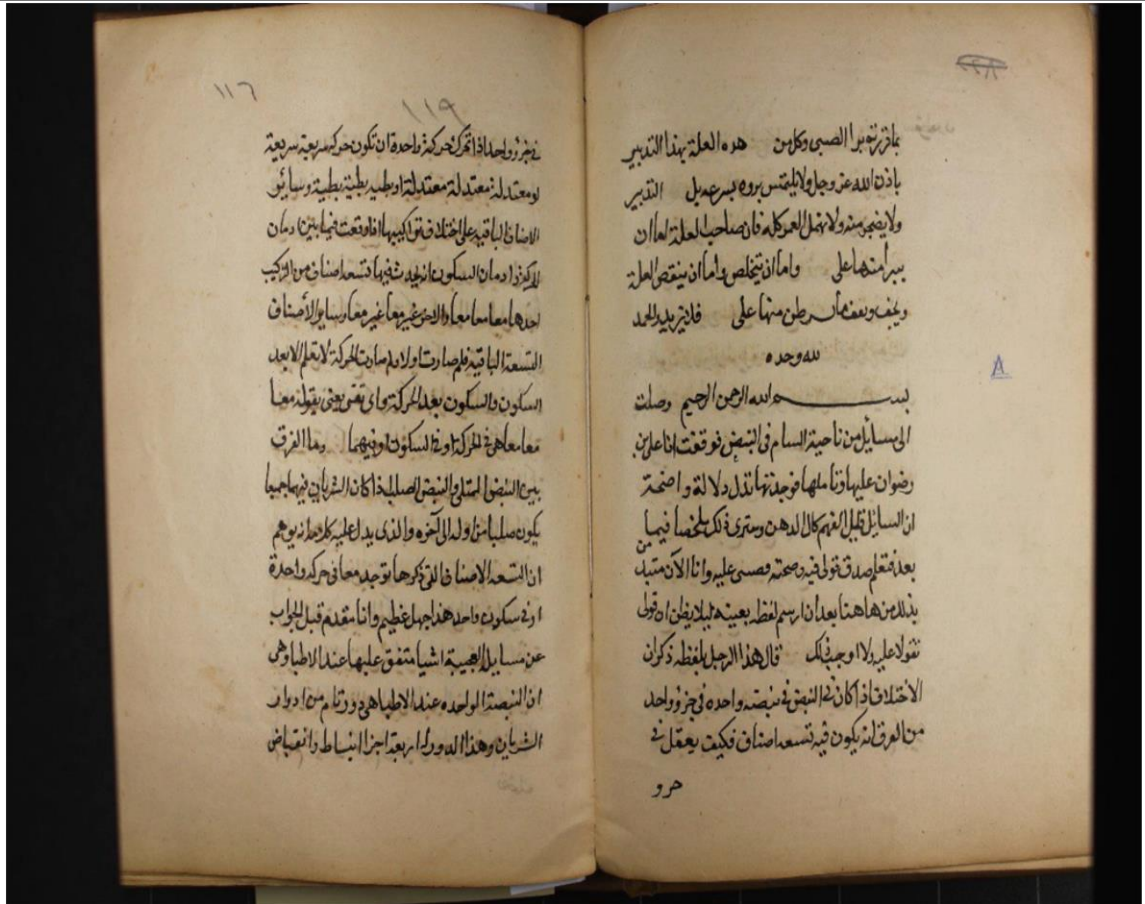 بهذا التدبير وكل من هذه العلة
باذن الله عز وجل ولا يلتمس بروه بسرعه بل التدبير
ولا يضجر منه ولا يهمل العمر كله فان صاحب العلة اما ان
يبرا منها على واما ان يتخلص واما ان ينقص العلة
ويخف منها على فلا تزيد الحمد
لله وحده
A
بسم الله الرحمن الرحيم وصلت
الى مسايل من ناحية الشام فى النبض فوقفت انا على بن
رضوان عليها وتاملها فوجدتها تدل دلالة واضحة
ان السايل قليل الفهم كال الدهن وسترى ذلك ملخصا فيما
بعد فتعلم صدق قولى فيه وصحته وانا الآن مبتد
بذلك من هاهنا بعد ان ارسم لفظه بعينه ليلا يظن ان قولى
تقولا عليه قال هذا الرجل بلفظه ذكر ان
الاختلاف اذا كان فى النبض فى نبضه واحده فى جزو واحد
من العرق انه يكون فيه تسعه اصناف فكيف يعقل فى
جزو
١١٦
١١٩
فى جزو واحد اذا تحرك حركة واحدة ان تكون حركه سريعة سريعة
او معتدلة معتدلة معتدلة او بطيه بطية بطية وساير
الاصناف الباقيه على اختلاف تراكيبها اذا وقعت فيما بين زمان
الحركة وزمان السكون انه يحدث فيها تسعه اصناف من التركيب
احدها معا معا معا والاخر غير معا غير معا وساير الأصناف
التسعة الباقيه فلم صارت اولا ولم صارت الحركة لا تعلم الا بعد
السكون والسكون بعد الحركة واى شى يعنى بقوله معا
معا معا هى فى الحركة او فى السكون او فيهما وما الفرق
بين النبض الممتلى والنبض الصلب اذا كان الشريان فيهما جميعا
يكون صلبا من اوله الى آخره والذى يدل عليه كلامه انه يوهم
ان التسعه الاصناف التى ذكرها توجد معا فى حركة واحدة
او فى سكون واحد هذا جهل عظيم وانا مقدم قبل الجواب
عن مسايله العجيبة اشيا متفق عليها عند الاطبا وهى
ان النبضة الواحده عند الاطبا هى دور تام من ادوار
الشريان وهذا الدور له اربعة اجزا انبساط وانقباض